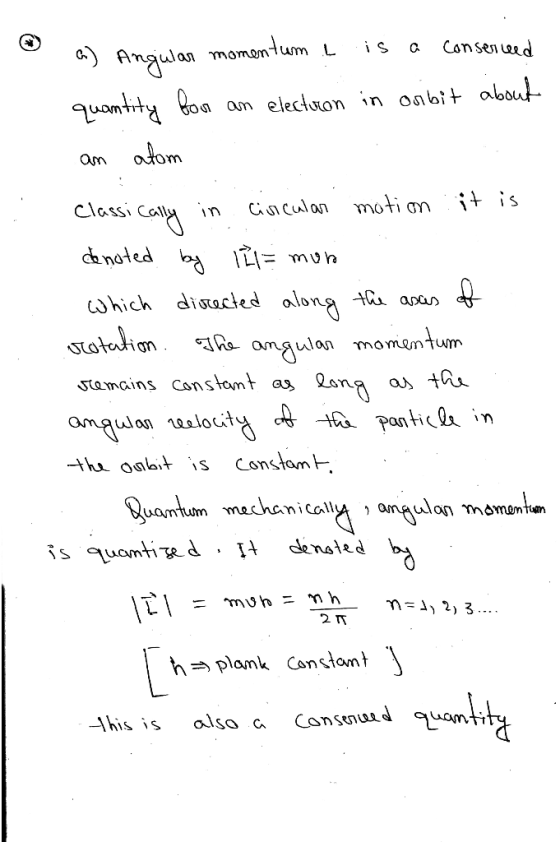 a) Angular momentum L is a conserved
quantity for an electron in orbit about
an atom
Classically in circular motion it is
denoted by |L⃗| = mvr
which directed along the axis of
rotation. The angular momentum
remains constant as long as the
angular velocity of the particle in
the orbit is constant.
Quantum mechanically, angular momentum
is quantized. It denoted by
|L⃗| = mvr = nh/2π n=1, 2, 3....
[h ⇒ plank constant]
this is also a conserved quantity